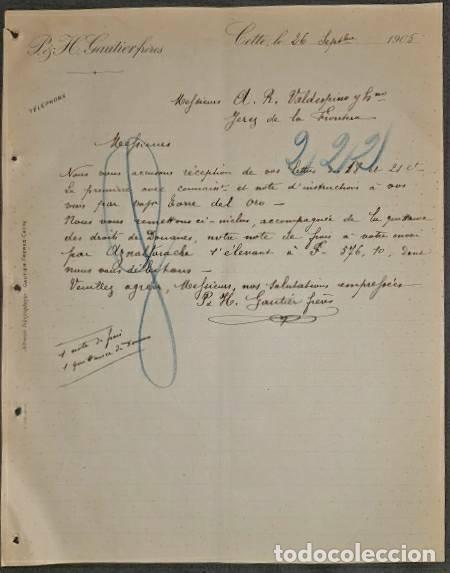 P. & H. Gautier frères
Cette, le 26 Septbre 1905
TÉLÉPHONE
Messieurs A. R. Valdespino y Hno
Jerez de la Frontera
Messieurs
2/2/2/
Nous vous accusons réception de vos lettres du 18 et 21 ct
La première avec connaist et note d'instructions à vos
vins par vapr Torre del Oro —
Nous vous remettons ci-inclus, accompagnée de la quittance
des droits de Douanes, notre note de frais à votre envoi
par Aznalfarache s'élevant à F. 576,10, dont
nous vous débitons —
Veuillez agréer, Messieurs, nos salutations empressées
P. & H. Gautier frères
1 note de frais
1 quittance de Douane
Adresse Télégraphique: Gautier Frères Cette
todocoleccion
todocoleccion.net